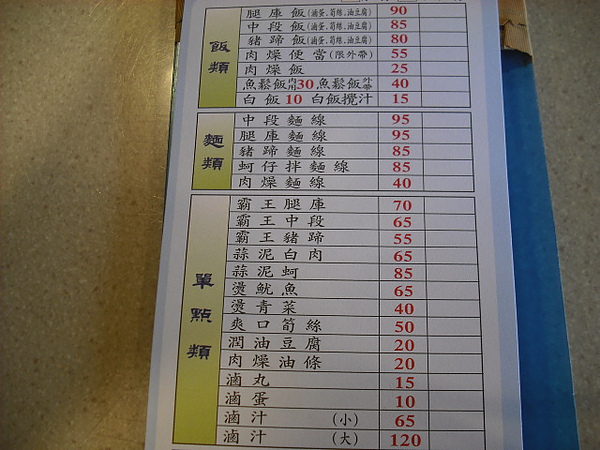 飯類
腿庫飯(滷蛋、筍絲、油豆腐) 90
中段飯(滷蛋、筍絲、油豆腐) 85
豬蹄飯(滷蛋、筍絲、油豆腐) 80
肉燥便當(限外帶) 55
肉燥飯 25
魚鬆飯內用30 魚鬆飯外帶 40
白飯10 白飯攪汁 15
麵類
中段麵線 95
腿庫麵線 95
豬蹄麵線 85
蚵仔拌麵線 85
肉燥麵線 40
單點類
霸王腿庫 70
霸王中段 65
霸王豬蹄 55
蒜泥白肉 65
蒜泥蚵 85
燙魷魚 65
燙青菜 40
爽口筍絲 50
潤油豆腐 20
肉燥油條 20
滷丸 15
滷蛋 10
滷汁(小) 65
滷汁(大) 120